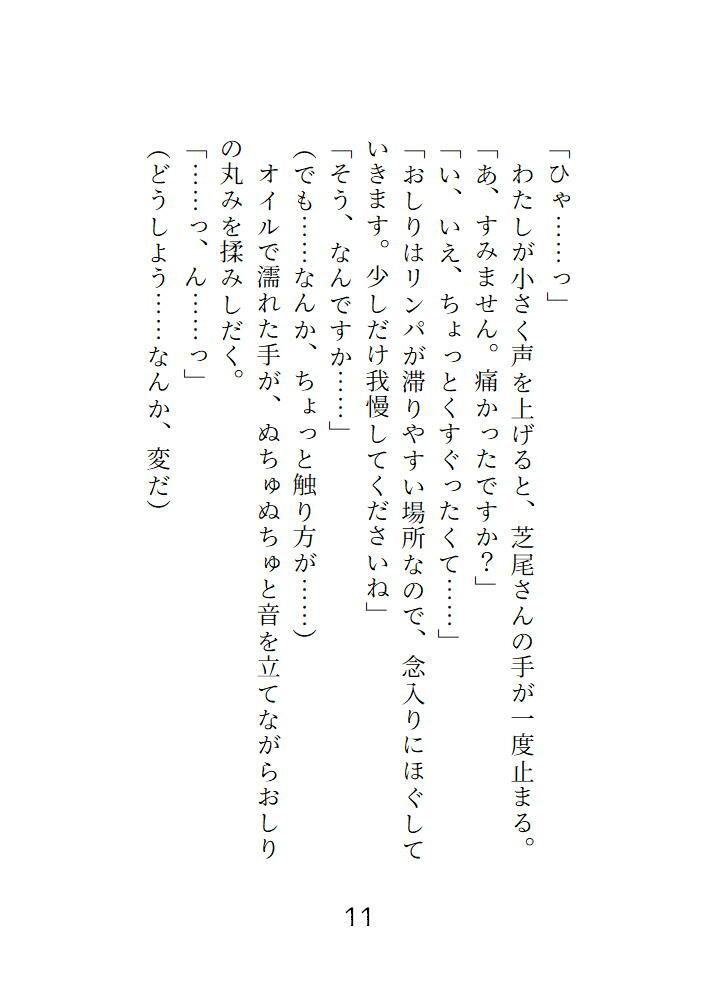 「ひゃ……っ」
　わたしが小さく声を上げると、芝尾さんの手が一度止まる。
「あ、すみません。痛かったですか？」
「い、いえ、ちょっとくすぐったくて……」
「おしりはリンパが滞りやすい場所なので、念入りにほぐして
いきます。少しだけ我慢してくださいね」
「そう、なんですか……」
（でも……なんか、ちょっと触り方が……）
　オイルで濡れた手が、ぬちゅぬちゅと音を立てながらおしり
の丸みを揉みしだく。
「……っ、ん……っ」
（どうしよう……なんか、変だ）
11